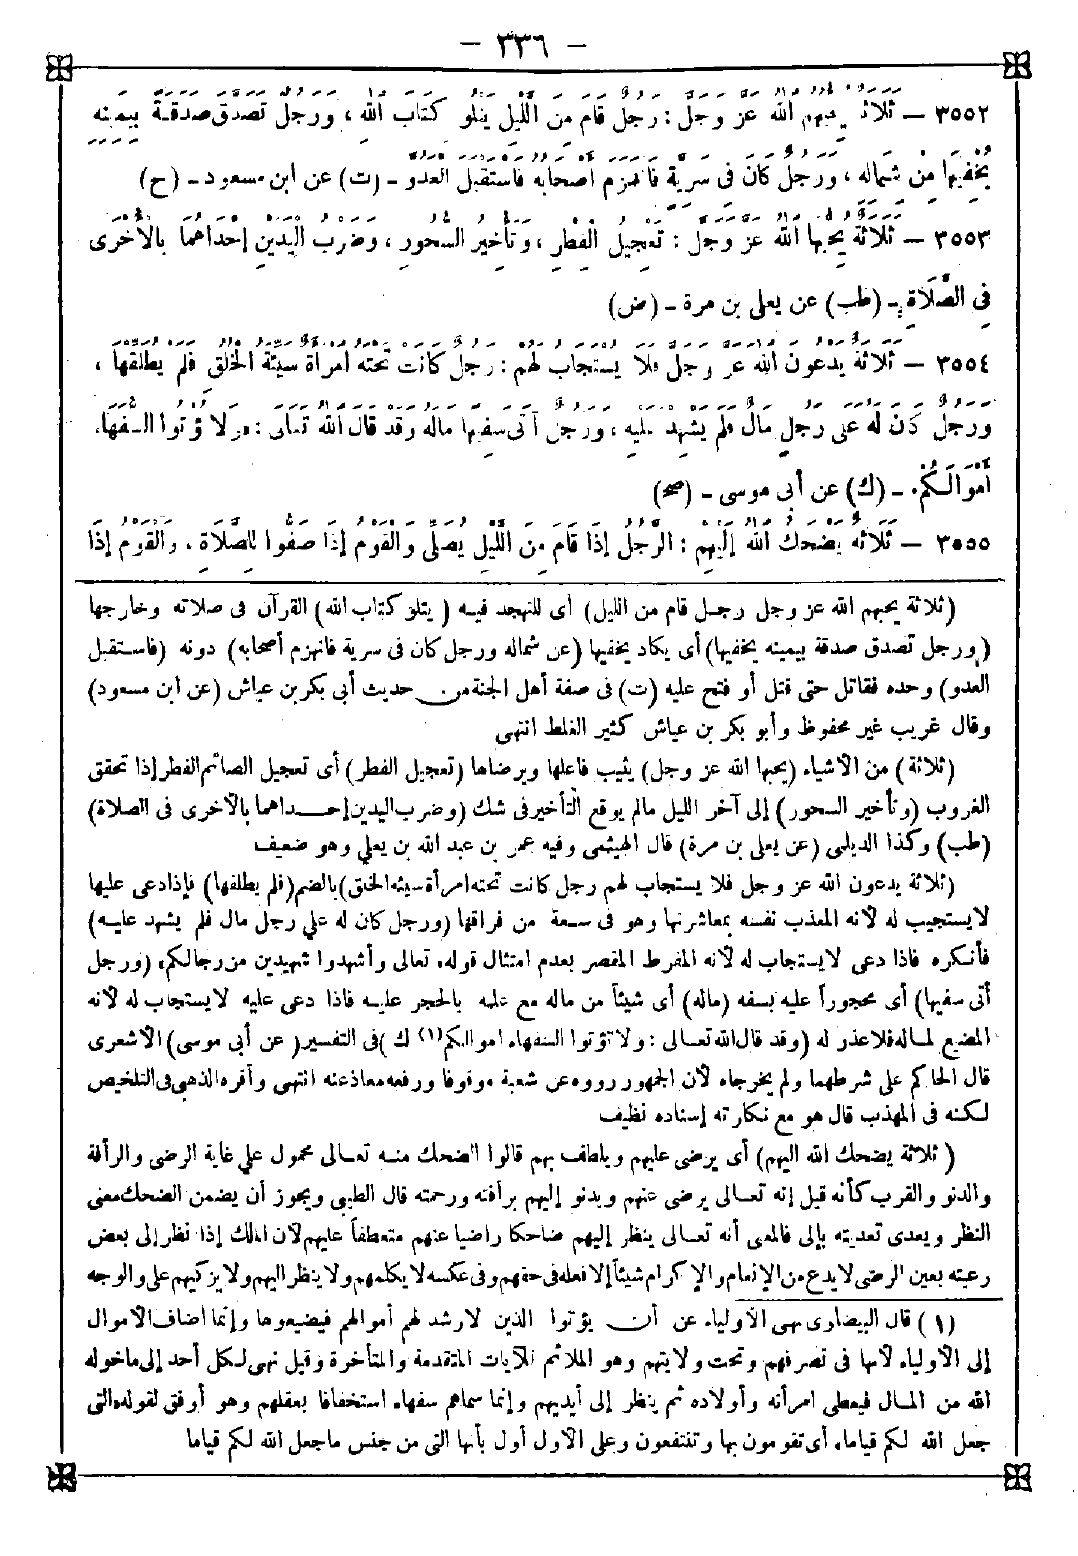 - ٣٣٦ -
٣٥٥٢ - ثَلَاثَةٌ يُحِبُّهُمُ اللهُ عَزَّ وَجَلَّ : رَجُلٌ قَامَ مِنَ اللَّيْلِ يَتْلُو كِتَابَ اللهِ ، وَرَجُلٌ تَصَدَّقَ صَدَقَةً بِيَمِينِهِ
يُخْفِيهَا مِنْ شِمَالِهِ ، وَرَجُلٌ كَانَ فِي سَرِيَّةٍ فَانْهَزَمَ أَصْحَابُهُ فَاسْتَقْبَلَ الْعَدُوَّ - (ت) عن ابن مسعود - (ح)
٣٥٥٣ - ثَلَاثَةٌ يُحِبُّهَا اللهُ عَزَّ وَجَلَّ : تَعْجِيلُ الْفِطْرِ ، وَتَأْخِيرُ السَّحُورِ ، وَضَرْبُ الْيَدَيْنِ إِحْدَاهُمَا بِالْأُخْرَى
فِي الصَّلَاةِ - (طب) عن يعلى بن مرة - (ض)
٣٥٥٤ - ثَلَاثَةٌ يَدْعُونَ اللهَ عَزَّ وَجَلَّ فَلَا يُسْتَجَابُ لَهُمْ : رَجُلٌ كَانَتْ تَحْتَهُ امْرَأَةٌ سَيِّئَةُ الْخُلُقِ فَلَمْ يُطَلِّقْهَا ،
وَرَجُلٌ كَانَ لَهُ عَلَى رَجُلٍ مَالٌ فَلَمْ يُشْهِدْ عَلَيْهِ ، وَرَجُلٌ آتَى سَفِيهًا مَالَهُ وَقَدْ قَالَ اللهُ تَعَالَى : «وَلَا تُؤْتُوا السُّفَهَاءَ
أَمْوَالَكُمْ» - (ك) عن أبي موسى - (صح)
٣٥٥٥ - ثَلَاثَةٌ يَضْحَكُ اللهُ إِلَيْهِمْ : الرَّجُلُ إِذَا قَامَ مِنَ اللَّيْلِ يُصَلِّي وَالْقَوْمُ إِذَا صَفُّوا لِلصَّلَاةِ ، وَالْقَوْمُ إِذَا
(ثلاثة يحبهم الله عز وجل رجل قام من الليل) أى للتهجد فيه (يتلو كتاب الله) القرآن فى صلاته وخارجها
(ورجل تصدق صدقة بيمينه يخفيها) أى يكاد يخفيها (عن شماله ورجل كان فى سرية فانهزم أصحابه) دونه (فاستقبل
العدو) وحده فقاتل حتى قتل أو فتح عليه (ت) فى صفة أهل الجنة من حديث أبى بكر بن عياش (عن ابن مسعود)
وقال غريب غير محفوظ وأبو بكر بن عياش كثير الغلط انتهى
(ثلاثة) من الأشياء (يحبها الله عز وجل) يثيب فاعلها ويرضاها (تعجيل الفطر) أى تعجيل الصائم الفطر إذا تحقق
الغروب (وتأخير السحور) إلى آخر الليل مالم يوقع التأخير فى شك (وضرب اليدين إحداهما بالأخرى فى الصلاة)
(طب) وكذا الديلمى (عن يعلى بن مرة) قال الهيثمى وفيه عمر بن عبد الله بن يعلى وهو ضعيف
(ثلاثة يدعون الله عز وجل فلا يستجاب لهم رجل كانت تحته امرأة سيئة الخلق) بالضم (فلم يطلقها) فإذا دعى عليها
لا يستجيب له لأنه المعذب نفسه بمعاشرتها وهو فى سعة من فراقها (ورجل كان له على رجل مال فلم يشهد عليه)
فأنكره فاذا دعى لا يستجاب له لأنه المفرط المقصر بعدم امتثال قوله تعالى وأشهدوا شهيدين من رجالكم (ورجل
أتى سفيها) أى محجوراً عليه بسفه (ماله) أى شيئاً من ماله مع علمه بالحجر عليه فاذا دعى عليه لا يستجاب له لأنه
المضيع لماله فلا عذر له (وقد قال الله تعالى : ولا تؤتوا السفهاء اموالكم (١) ك) فى التفسير (عن أبى موسى) الأشعرى
قال الحاكم على شرطهما ولم يخرجاه لأن الجمهور رووه عن شعبة موقوفا ورفعه معاذ عنه انتهى وأقره الذهبى فى التلخيص
لكنه فى المهذب قال هو مع نكارته إسناده نظيف
(ثلاثة يضحك الله اليهم) أى يرضى عليهم ويلطف بهم قالوا الضحك منه تعالى محمول على غاية الرضى والرأفة
والدنو والقرب كأنه قيل إنه تعالى يرضى عنهم ويدنو إليهم برأفته ورحمته قال الطيبى ويجوز أن يضمن الضحك معنى
النظر ويعدى تعديته بإلى فالمعنى أنه تعالى ينظر إليهم ضاحكا راضيا عنهم متعطفاً عليهم لأن الملك إذا نظر إلى بعض
رعيته بعين الرضى لا يدع من الإنعام والإكرام شيئاً إلا فعله فى حقهم وفى عكسه لا يكلمهم ولا ينظر اليهم ولا يزكيهم على والوجه
(١) قال البيضاوى نهى الأولياء عن أن يؤتوا الذين لا رشد لهم أموالهم فيضيعوها وإنما اضاف الأموال
إلى الأولياء لأنها فى تصرفهم وتحت ولايتهم وهو الملائم للآيات المتقدمة والمتأخرة وقيل نهى لكل أحد إلى ماخوله
الله من المال فيعطى امرأته وأولاده ثم ينظر إلى أيديهم وإنما سماهم سفهاء استخفافا بعقلهم وهو أوفق لقوله التى
جعل الله لكم قياما، أى تقومون بها وتنتفعون وعلى الأول أول بأنها التى من جنس ماجعل الله لكم قياما